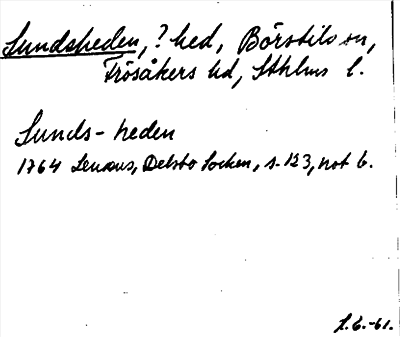 Sundsheden, ? hed, Börstils sn,
Frösåkers hd, Sthlms l.
Sunds-heden
1764 Lenæus, Delsbo Socken, s. 123, not 6.
L.E.-61.